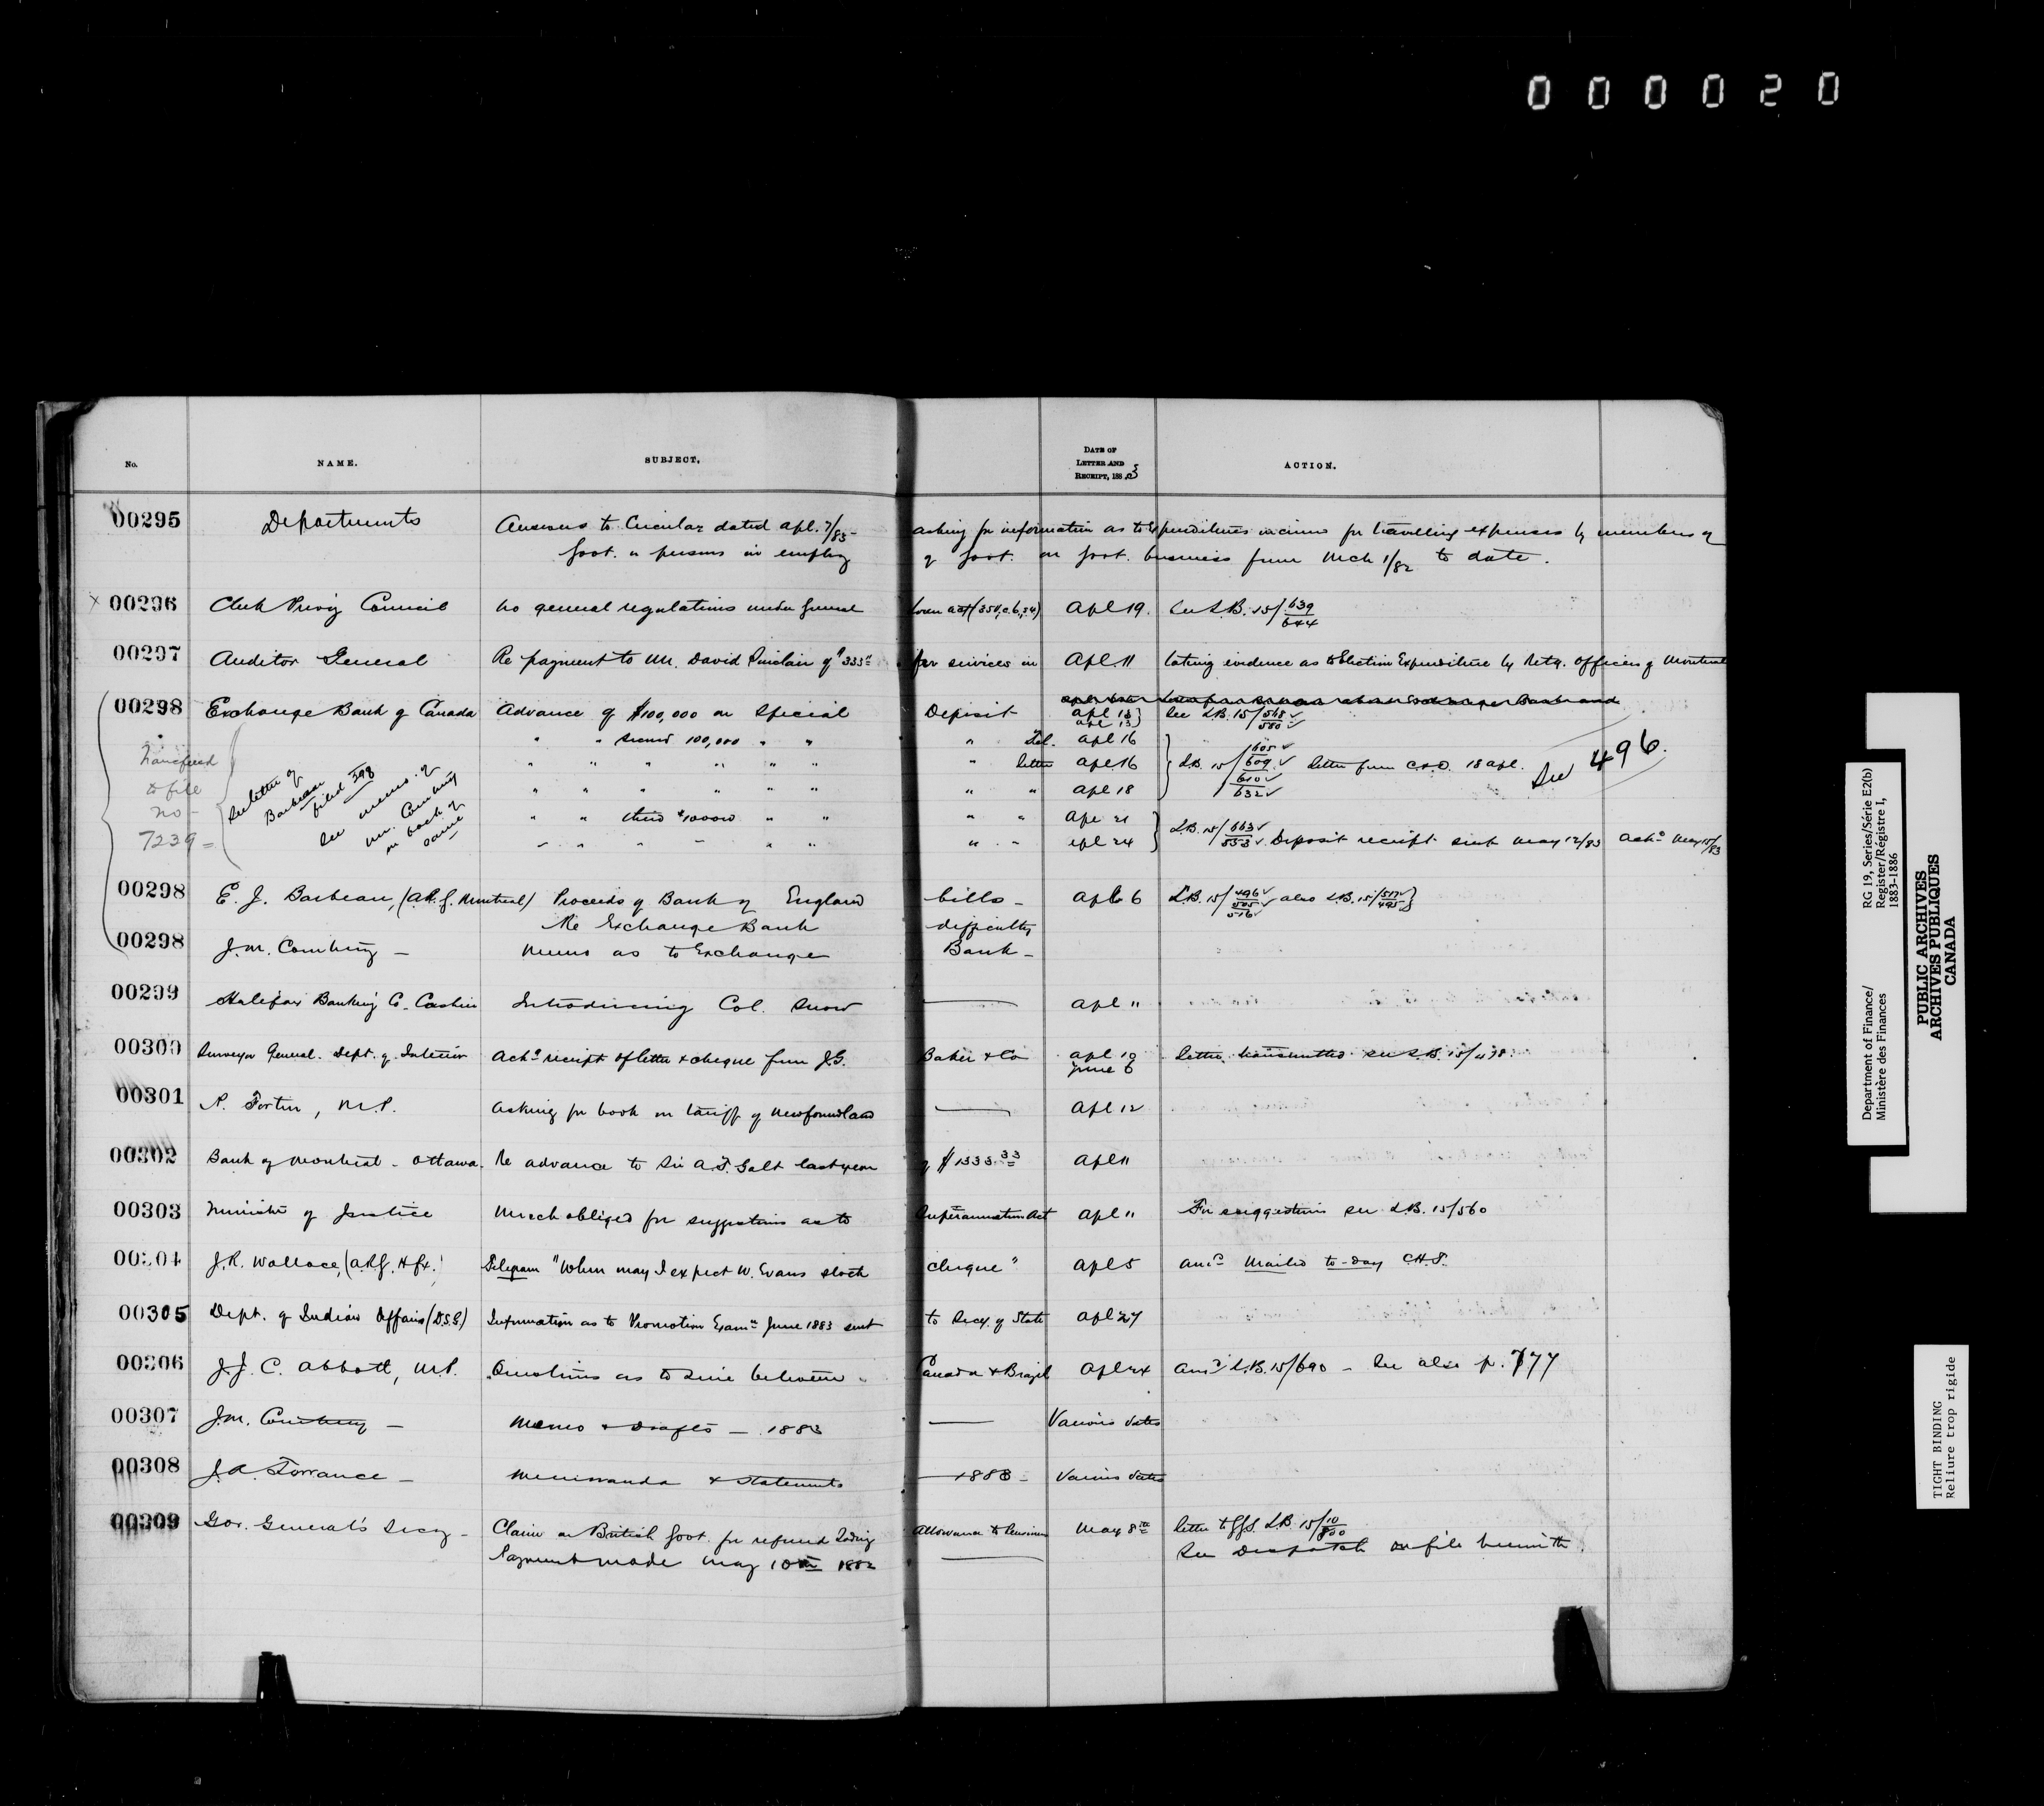 000020
No. NAME. SUBJECT. DATE OF LETTER AND RECEIPT, 1883 ACTION.
00295 Departments Answers to Circular dated Apl. 7/83 asking for information as to Expenditures for travelling expenses by members of
Govt. or persons in employ of Govt. on Govt. business from Mch 1/82 to date.
x 00296 Clerk Privy Council no general regulations under General Loan Act Apl 19. See L.B. 15/639/644
00297 Auditor General Re payment to Mr. David Sinclair of $333 for services in Apl 11 taking evidence as to Election Expenditure by Retg. Officers of Montreal
00298 Exchange Bank of Canada Advance of $100,000 on Special Deposit Apl 13 See L.B. 15/568/580
Apl 13
" " Second 100,000 " " " Tel. Apl 16
" " " " " " " letter Apl 16 L.B. 15/605/609/610/632 letter from C.&O. 18 Apl. See 496.
" " " " " " " " Apl 18
" " third $100000 " " " " Apl 21
" " " " " " " " Apl 24 L.B. 15/663/553 Deposit receipt sent May 12/83 Ackd May 15/83
Transferred
to file
No -
7239 =
See letter of
Barbeau
filed 398
See memo. of
Mr. Courtney
on back of
same
00298 E. J. Barbeau, (A.R.G. Montreal) Proceeds of Bank of England bills - Apl 6 L.B. 15/496/505/516 also L.B. 15/517/495
Re Exchange Bank difficulty
00298 J.M. Courtney - Memo as to Exchange Bank -
00299 Halifax Banking Co. Cashier Introducing Col. Snow — Apl 11
00300 Surveyor General. Dept. of Interior Ackg receipt of letter & cheque from J.G. Baker & Co Apl 10 letter transmitted see L.B. 15/498.
June 6
00301 P. Fortin, M.P. Asking for book on tariff of Newfoundland — Apl 12
00302 Bank of Montreal - Ottawa. Re advance to Sir A.T. Galt last year of $1333.33 Apl 11
00303 Minister of Justice Much obliged for suggestions as to Superannuation Act Apl 11 For suggestions see L.B. 15/560
00304 J.R. Wallace, (A.R.G. Hfx.) Telegram "When may I expect W. Evans stock cheque" Apl 5 ansd Mailed to-day
00305 Dept. of Indian Affairs (D.S.G.) Information as to Promotion Examn June 1883 sent to Secy. of State Apl 27
00306 J.J. C. Abbott, M.P. Questions as to Line between Canada & Brazil Apl 24 ansd L.B. 15/690 - See also p. 777
00307 J.M. Courtney - Memo & Drafts - 1883 — Various dates
00308 J.A. Torrance - Memoranda & Statements — 1883 - Various dates
00309 Gov. General's Secy - Claim on British Govt. for refund Allowance to Pensioners May 8th letter to L.B. 15/10/800
Payment made May 10th 1882 — See Despatch on file herewith.
Department of Finance/
Ministère des Finances
RG 19, Series/Série E2(b)
Register/Régistre I,
1883-1886
PUBLIC ARCHIVES
ARCHIVES PUBLIQUES
CANADA
TIGHT BINDING
Reliure trop rigide